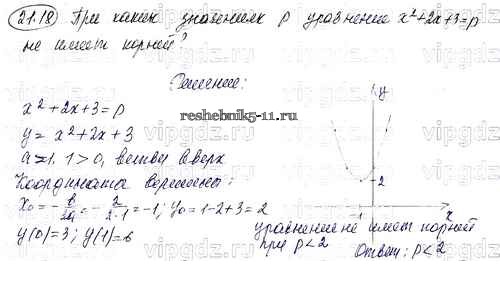 21.18 При каких значениях p уравнение x²+2x+3=p
не имеет корней?
Решение:
x²+2x+3=p
reshebnik5-11.ru
y=x²+2x+3
a=1, 1>0, ветви вверх
Координаты вершины:
x₀=-b/2a=-2/2·1=-1; y₀=1-2+3=2
y(0)=3; y(1)=6
y
2
-1
x
уравнение не имеет корней
при p<2
Ответ: p<2
vipgdz.ru